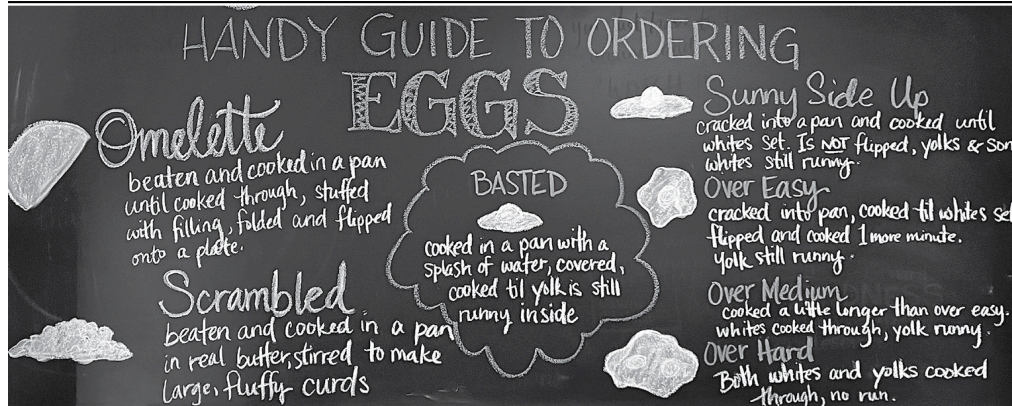 HANDY GUIDE TO ORDERING
EGGS
Omelette
beaten and cooked in a pan
until cooked through, stuffed
with filling, folded and flipped
onto a plate.
Scrambled
beaten and cooked in a pan
in real butter, stirred to make
large, fluffy curds
BASTED
cooked in a pan with a
splash of water, covered,
cooked til yolk is still
runny inside
Sunny Side Up
cracked into a pan and cooked until
whites set. Is NOT flipped, yolks & som
whites still runny.
Over Easy
cracked into pan, cooked til whites set
flipped and cooked 1 more minute.
Yolk still runny.
Over Medium
cooked a little longer than over easy.
whites cooked through, yolk runny.
Over Hard
Both whites and yolks cooked
through, no run.